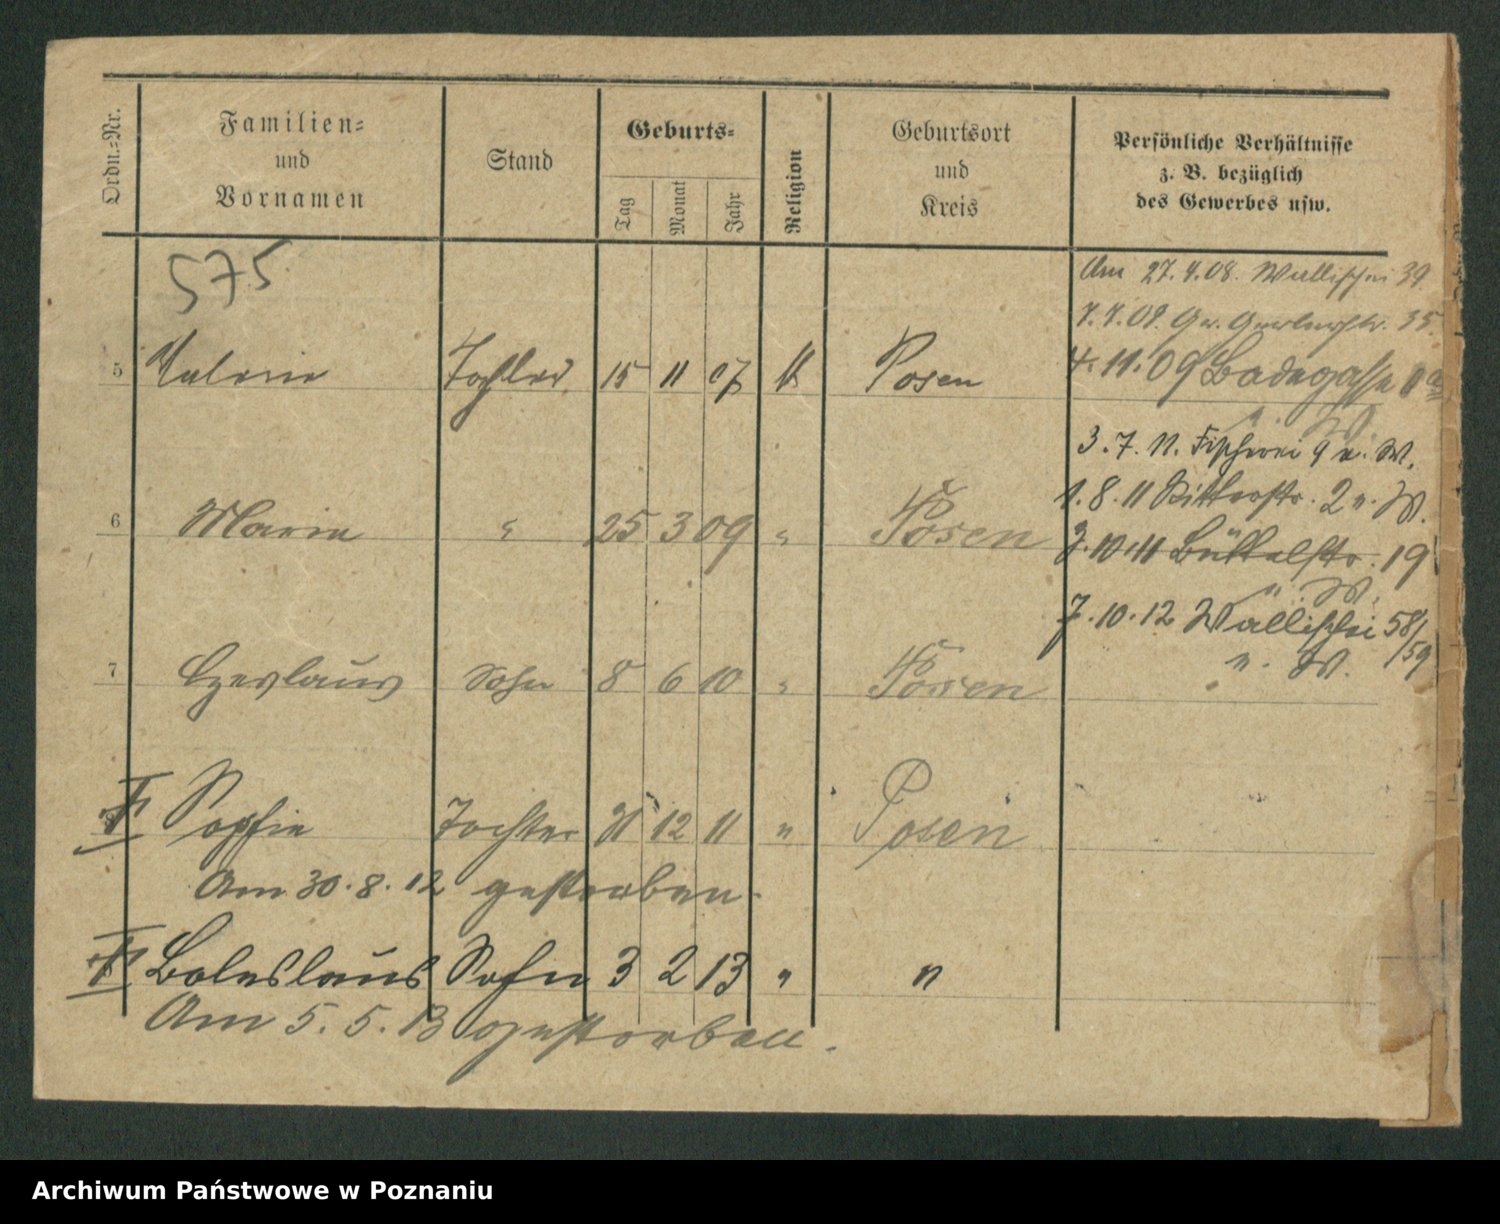 Ordn.-Nr.
Familien-
und
Vornamen
Stand
Geburts-
Tag
Monat
Jahr
Religion
Geburtsort
und
Kreis
Persönliche Verhältnisse
z. B. bezüglich
des Gewerbes usw.
575
Am 27.4.08. Wallischei 39
7.7.09. Gr. Gerberstr. 35.
5 Valerie Tochter 15 11 07 k Posen
4. 11. 09 Badegasse
u. W.
3. 7. 11. Fischerei 9 u. W.
1. 8. 11 Ritterstr. 2 u. W.
6 Maria " 25 3 09 " Posen
3. 10. 11 Büttelstr. 19
u. W.
7. 10. 12 Wallischei 58/59
u. W.
7 Czeslaus Sohn 8 6 10 " Posen
† Sophie Tochter 31 12 11 " Posen
Am 30. 8. 12 gestorben.
† Boleslaus Sohn 3 2 13 " "
Am 5. 5. 13 gestorben.
Archiwum Państwowe w Poznaniu